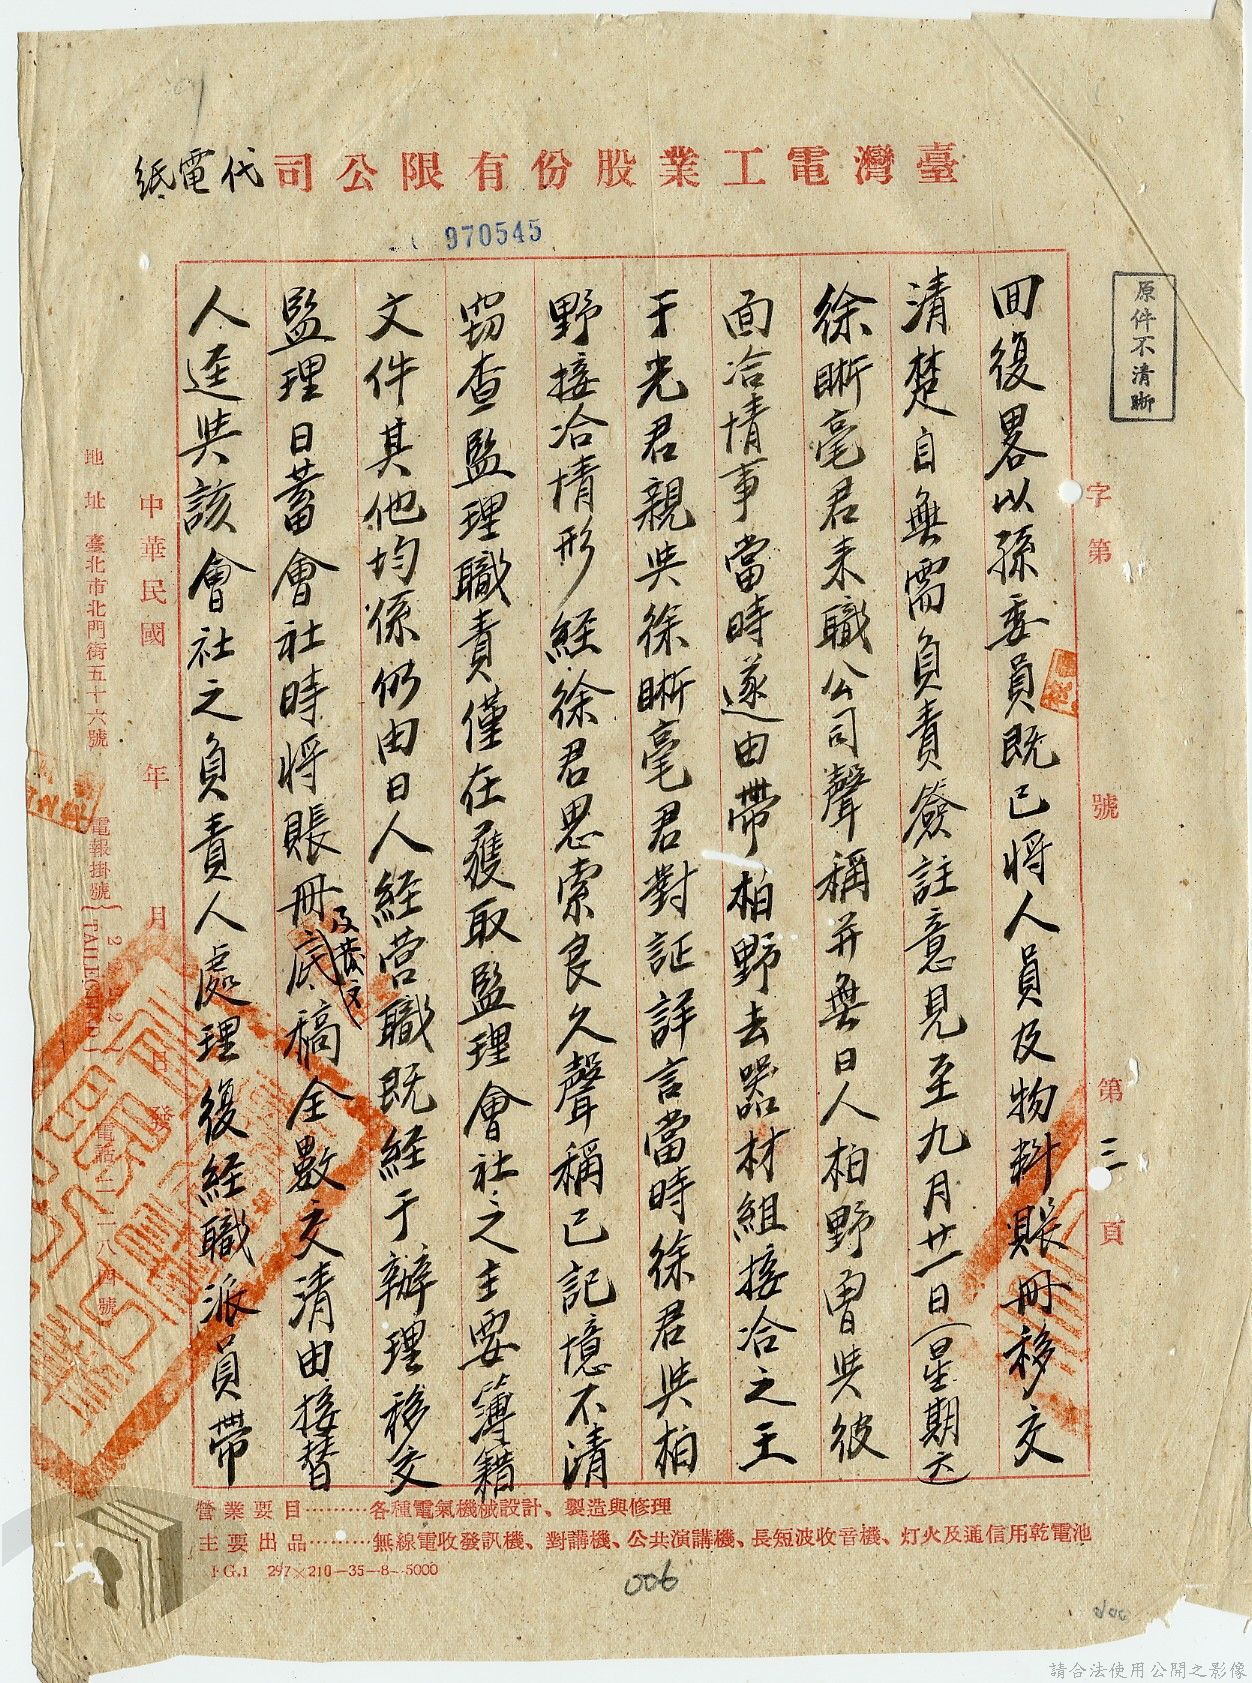 臺灣電工業股份有限公司代電紙
970545
原件不清晰
字第 號 第三頁
面復畧以孫委員既已将人員及物料賬冊移交
清楚自無需負責簽註意見至九月廿一日(星期六)
徐晰毫君来職公司聲稱并無日人柏野曾與彼
面洽情事當時遂由帶柏野去器材組接洽之王
于光君親與徐晰毫君對証詳言當時徐君與柏
野接洽情形経徐君思索良久聲稱已記憶不清
竊查監理職責僅在獲取監理會社之主要簿籍
文件其他均係仍由日人経营職既経于辦理移交
監理日蓄會社時将賬冊及發文底稿全數交清由接替
人迳與該會社之負責人處理後経職派員帶
中華民國 年 月 日 發
地址 臺北市北門街五十六號 電報掛號 電話二一八四號
營業要目………各種電氣機械設計、製造與修理
主要出品………無線電收發訊機、對講機、公共演講機、長短波收音機、灯火及通信用乾電池
FG.1 297×210—35—8—5000
006
請合法使用公開之影像